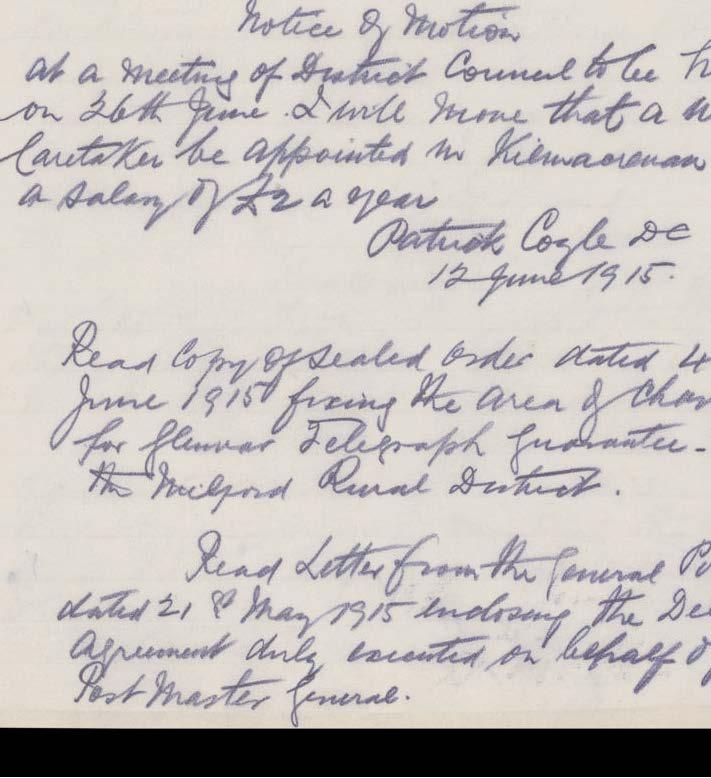 Notice of Motion
at a meeting of District Council to be h
on 26th June. I will move that a w
Caretaker be appointed in Kilmacrenan
a salary of £2 a year
Patrick Coyle DC
12 June 1915.
Read Copy of Sealed Order dated 4
June 1915 fixing the area of Char
for Glenvar Telegraph Guarantee -
the Milford Rural District.
Read Letter from the General Po
dated 21st May 1915 enclosing the Dee
Agreement duly executed on behalf of
Post Master General.